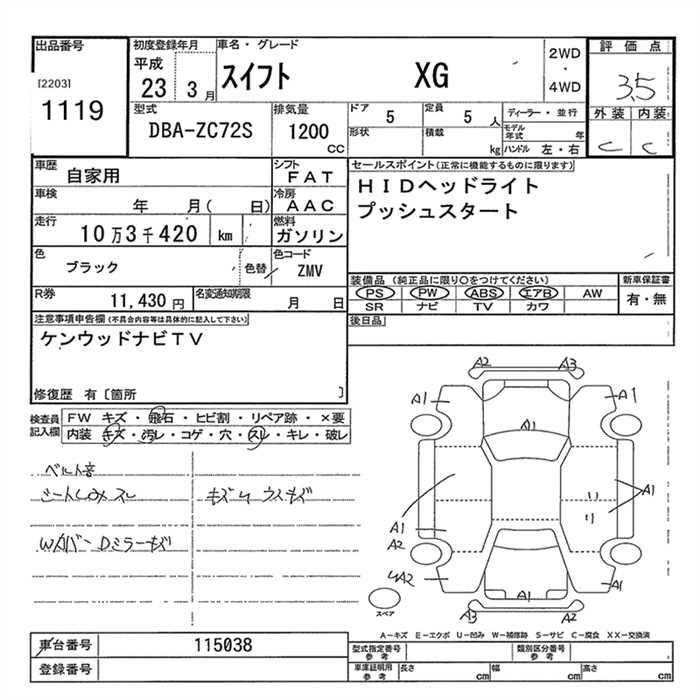 出品番号
[2203]
1119
初度登録年月
平成
23 3月
車名・グレード
スイフト XG
2WD
・
4WD
評価点
3.5
外装 内装
C C
型式
DBA-ZC72S
排気量
1200
CC
ドア 5
定員 5 人
形状
積載
kg
ディーラー・並行
モデル年式 年
ハンドル 左・右
車歴 自家用
シフト FAT
車検 年 月( 日)
冷房 AAC
走行 10万3千420 km
燃料 ガソリン
色 ブラック
色替
色コード ZMV
R券 11,430 円
名変通知期限 月 日
セールスポイント(正常に機能するものに限ります)
HIDヘッドライト
プッシュスタート
装備品(純正品に限り○をつけてください)
PS PW ABS エアB AW
SR ナビ TV カワ
新車保証書
有・無
後日品
注意事項申告欄(不具合内容等は具体的に記入して下さい)
ケンウッドナビTV
修復歴 有〔箇所 〕
検査員記入欄
FW キズ・飛石・ヒビ割・リペア跡・×要
内装 キズ・汚レ・コゲ・穴・スレ・キレ・破レ
ベルト音
シートしみ スレ
キズ ウスキズ
Wカバー Dミラーキズ
A2 A3
A1 A1
A1
A1
A1
A2
A2 A1 A1
A3 A2
スペア
A-キズ E-エクボ U-凹み W-補修跡 S-サビ C-腐食 XX-交換済
車台番号 115038
登録番号
型式指定番号
参考
類別区分番号
参考
車庫証明用
参考
長さ cm
幅 cm
高さ cm